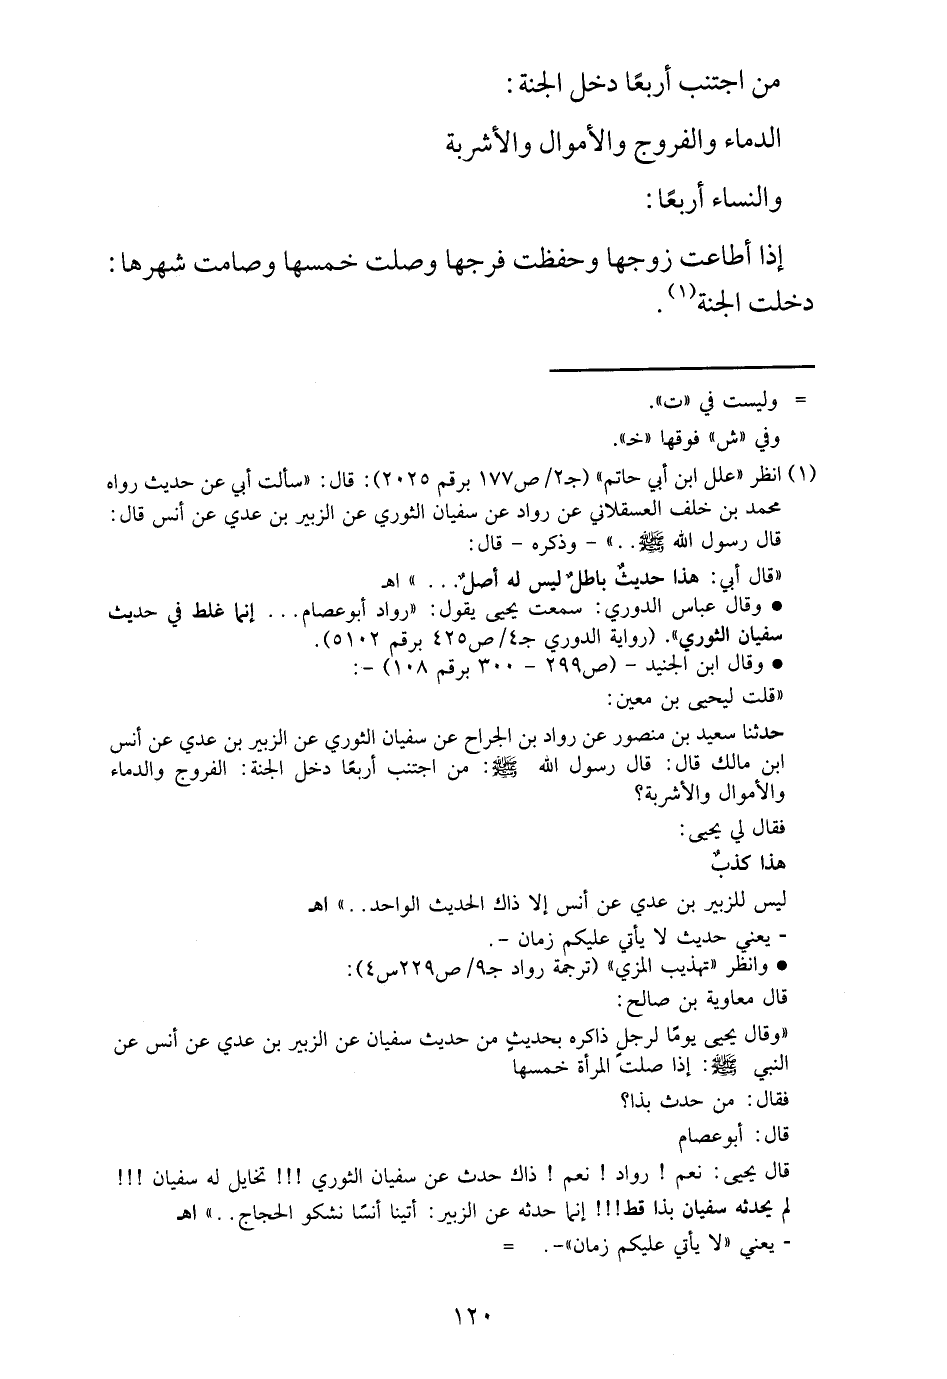 من اجتنب أربعًا دخل الجنة:
الدماء والفروج والأموال والأشربة
والنساء أربعًا:
إذا أطاعت زوجها وحفظت فرجها وصلت خمسها وصامت شهرها:
دخلت الجنة(١).
= وليست في «ت».
وفي «ش» فوقها «خـ».
(١) انظر «علل ابن أبي حاتم» (جـ٢/ ص١٧٧ برقم ٢٠٢٥): قال: «سألت أبي عن حديث رواه
محمد بن خلف العسقلاني عن رواد عن سفيان الثوري عن الزبير بن عدي عن أنس قال:
قال رسول الله ﷺ..» - وذكره - قال:
«قال أبي: هذا حديثٌ باطلٌ ليس له أصلٌ... » اهـ
● وقال عباس الدوري: سمعت يحيى يقول: «رواد أبوعصام... إنما غلط في حديث
سفيان الثوري». (رواية الدوري جـ٤/ ص٤٢٥ برقم ٥١٠٢).
● وقال ابن الجنيد - (ص٢٩٩ - ٣٠٠ برقم ١٠٨) -:
«قلت ليحيى بن معين:
حدثنا سعيد بن منصور عن رواد بن الجراح عن سفيان الثوري عن الزبير بن عدي عن أنس
ابن مالك قال: قال رسول الله ﷺ: من اجتنب أربعًا دخل الجنة: الفروج والدماء
والأموال والأشربة؟
فقال لي يحيى:
هذا كذبٌ
ليس للزبير بن عدي عن أنس إلا ذاك الحديث الواحد..» اهـ
- يعني حديث لا يأتي عليكم زمان -.
● وانظر «تهذيب المزي» (ترجمة رواد جـ٩/ ص٢٢٩س٤):
قال معاوية بن صالح:
«وقال يحيى يومًا لرجلٍ ذاكره بحديثٍ من حديث سفيان عن الزبير بن عدي عن أنس عن
النبي ﷺ: إذا صلت المرأة خمسها
فقال: من حدث بذا؟
قال: أبوعصام
قال يحيى: نعم ! رواد ! نعم ! ذاك حدث عن سفيان الثوري !!! تخايل له سفيان !!!
لم يحدثه سفيان بذا قط!!! إنما حدثه عن الزبير: أتينا أنسًا نشكو الحجاج..» اهـ
- يعني «لا يأتي عليكم زمان»-. =
١٢٠